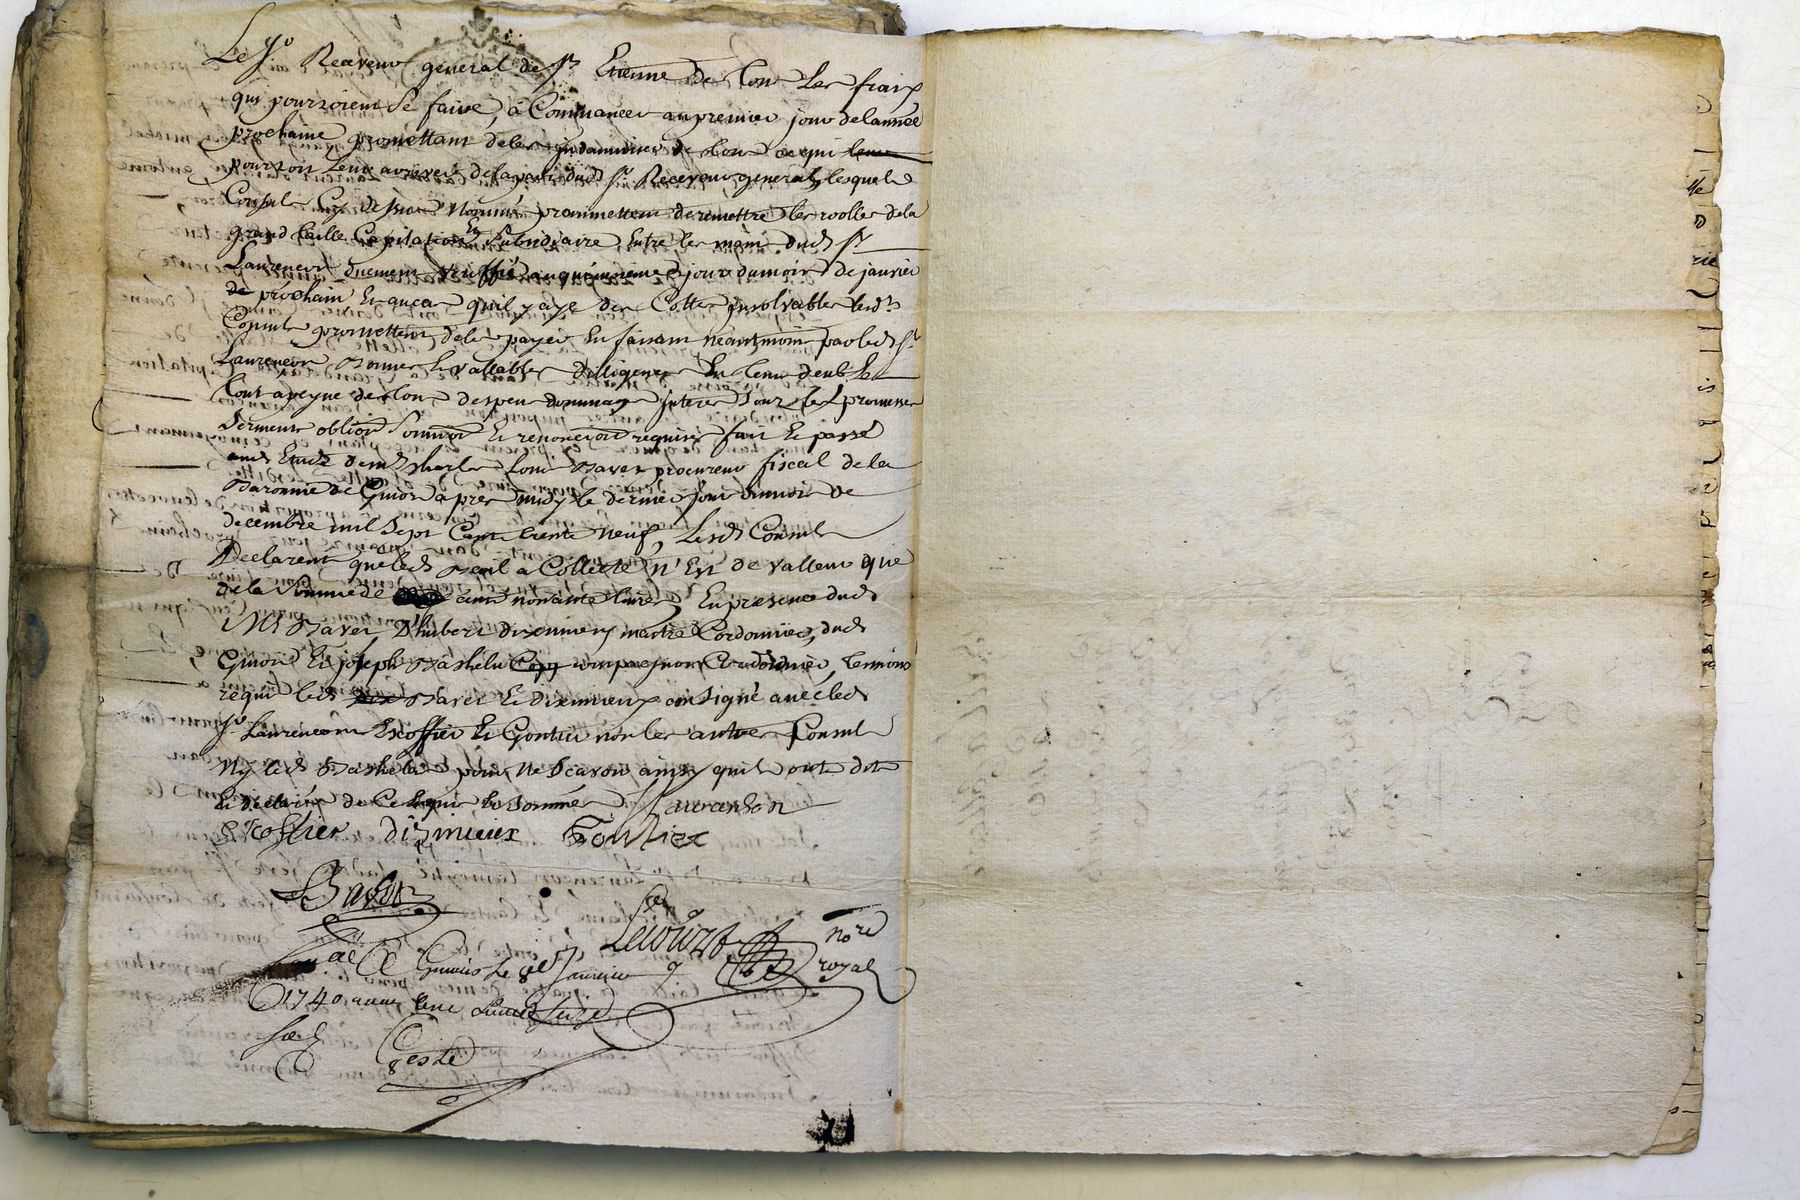 Le Sr. Receveur general de St Etienne de tous les fraix
qui pourroient se faire, a Commancer au premier jour de lannée
prochaine promettant de les indamniser de tout ce qui
pourroit leur arriver de la part dud Sr Receveur general, lesquels
Consuls Cy dessus Nommés prommettent de remettre les roolles de la
grand taille Capitation Et Subsidiaire Entre les mains dud Sr
Laurencon duement veriffié au quinzieme jour du mois de janvier
prochain Et au cas quil y aye des Cottes jnsolvables lesds
Consuls promettent de les payer En faisant neantmoins par led Sr
Laurencon Bonnes Et vallables Dilligences En temps deub Le
tout a peyne de tous despens dommage Interes Sous les promesses
Serments oblion Soumion Et renonciation requises fait Et passé
aud Etude de me Charles Louis Bavet procureur fiscal de la
Baronnie de Guion apres midy le dernier jour du mois de
decembre mil Sept Cent trente neuf, Lesd Consuls
Declarent que led Bail a Collecte N'Est de valleur que
de la Somme de cent nonante livres En presence dud
Me Bavet D'hubert dizimieux maitre Cordonnier, dud
Guion Et joseph Bathelu compagnon Cordonnier, temoins
requis led Bavet Et dizimieux ont signé avec led
Sr. Laurencon Escoffier Et Gontier non les autres Consuls
Ny led Bathelu pour ne Scavoir ainsy quils ont dit
Et declaré de Ce Enquis Et Sommés Lauranson
Escoffier dizimieux Gontier
Bavet
Lecourt nore
royal
Guion le 8e Janvier
1740 livre seize
Geste